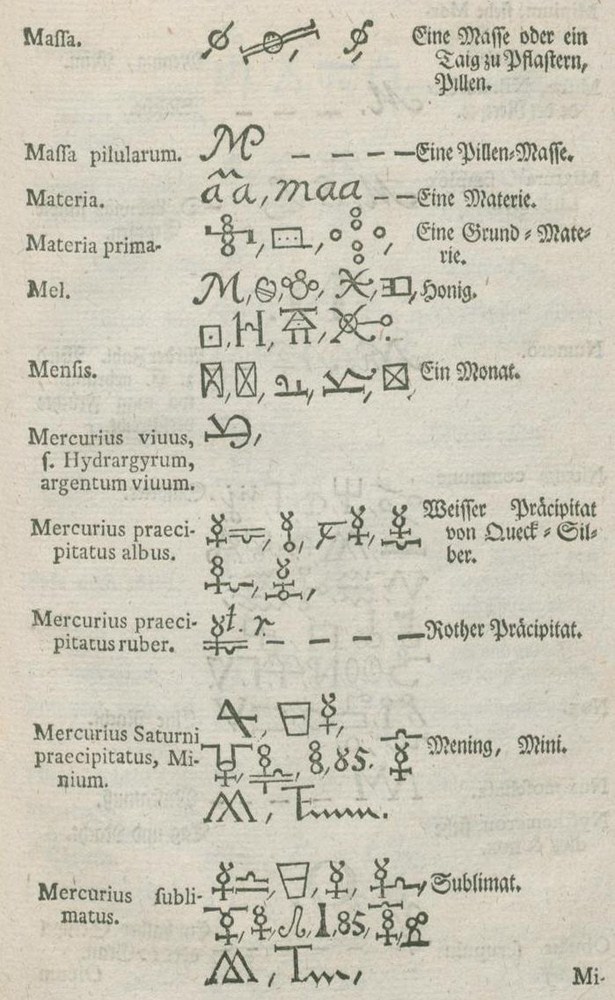 Massa. Eine Masse oder ein
Taig zu Pflastern,
Pillen.
Massa pilularum. — — — — Eine Pillen-Masse.
Materia. ãa, maa — — Eine Materie.
Materia prima- Eine Grund-Mate-
rie.
Mel. Honig.
Mensis. Ein Monat.
Mercurius viuus,
s. Hydrargyrum,
argentum viuum.
Mercurius praeci- Weisser Präcipitat
pitatus albus. von Queck-Sil-
ber.
Mercurius praeci-
pitatus ruber. — — — — Rother Präcipitat.
Mercurius Saturni
praecipitatus, Mi- 85. Mening, Mini.
nium.
Mercurius subli- Sublimat.
matus. 85
Mi-